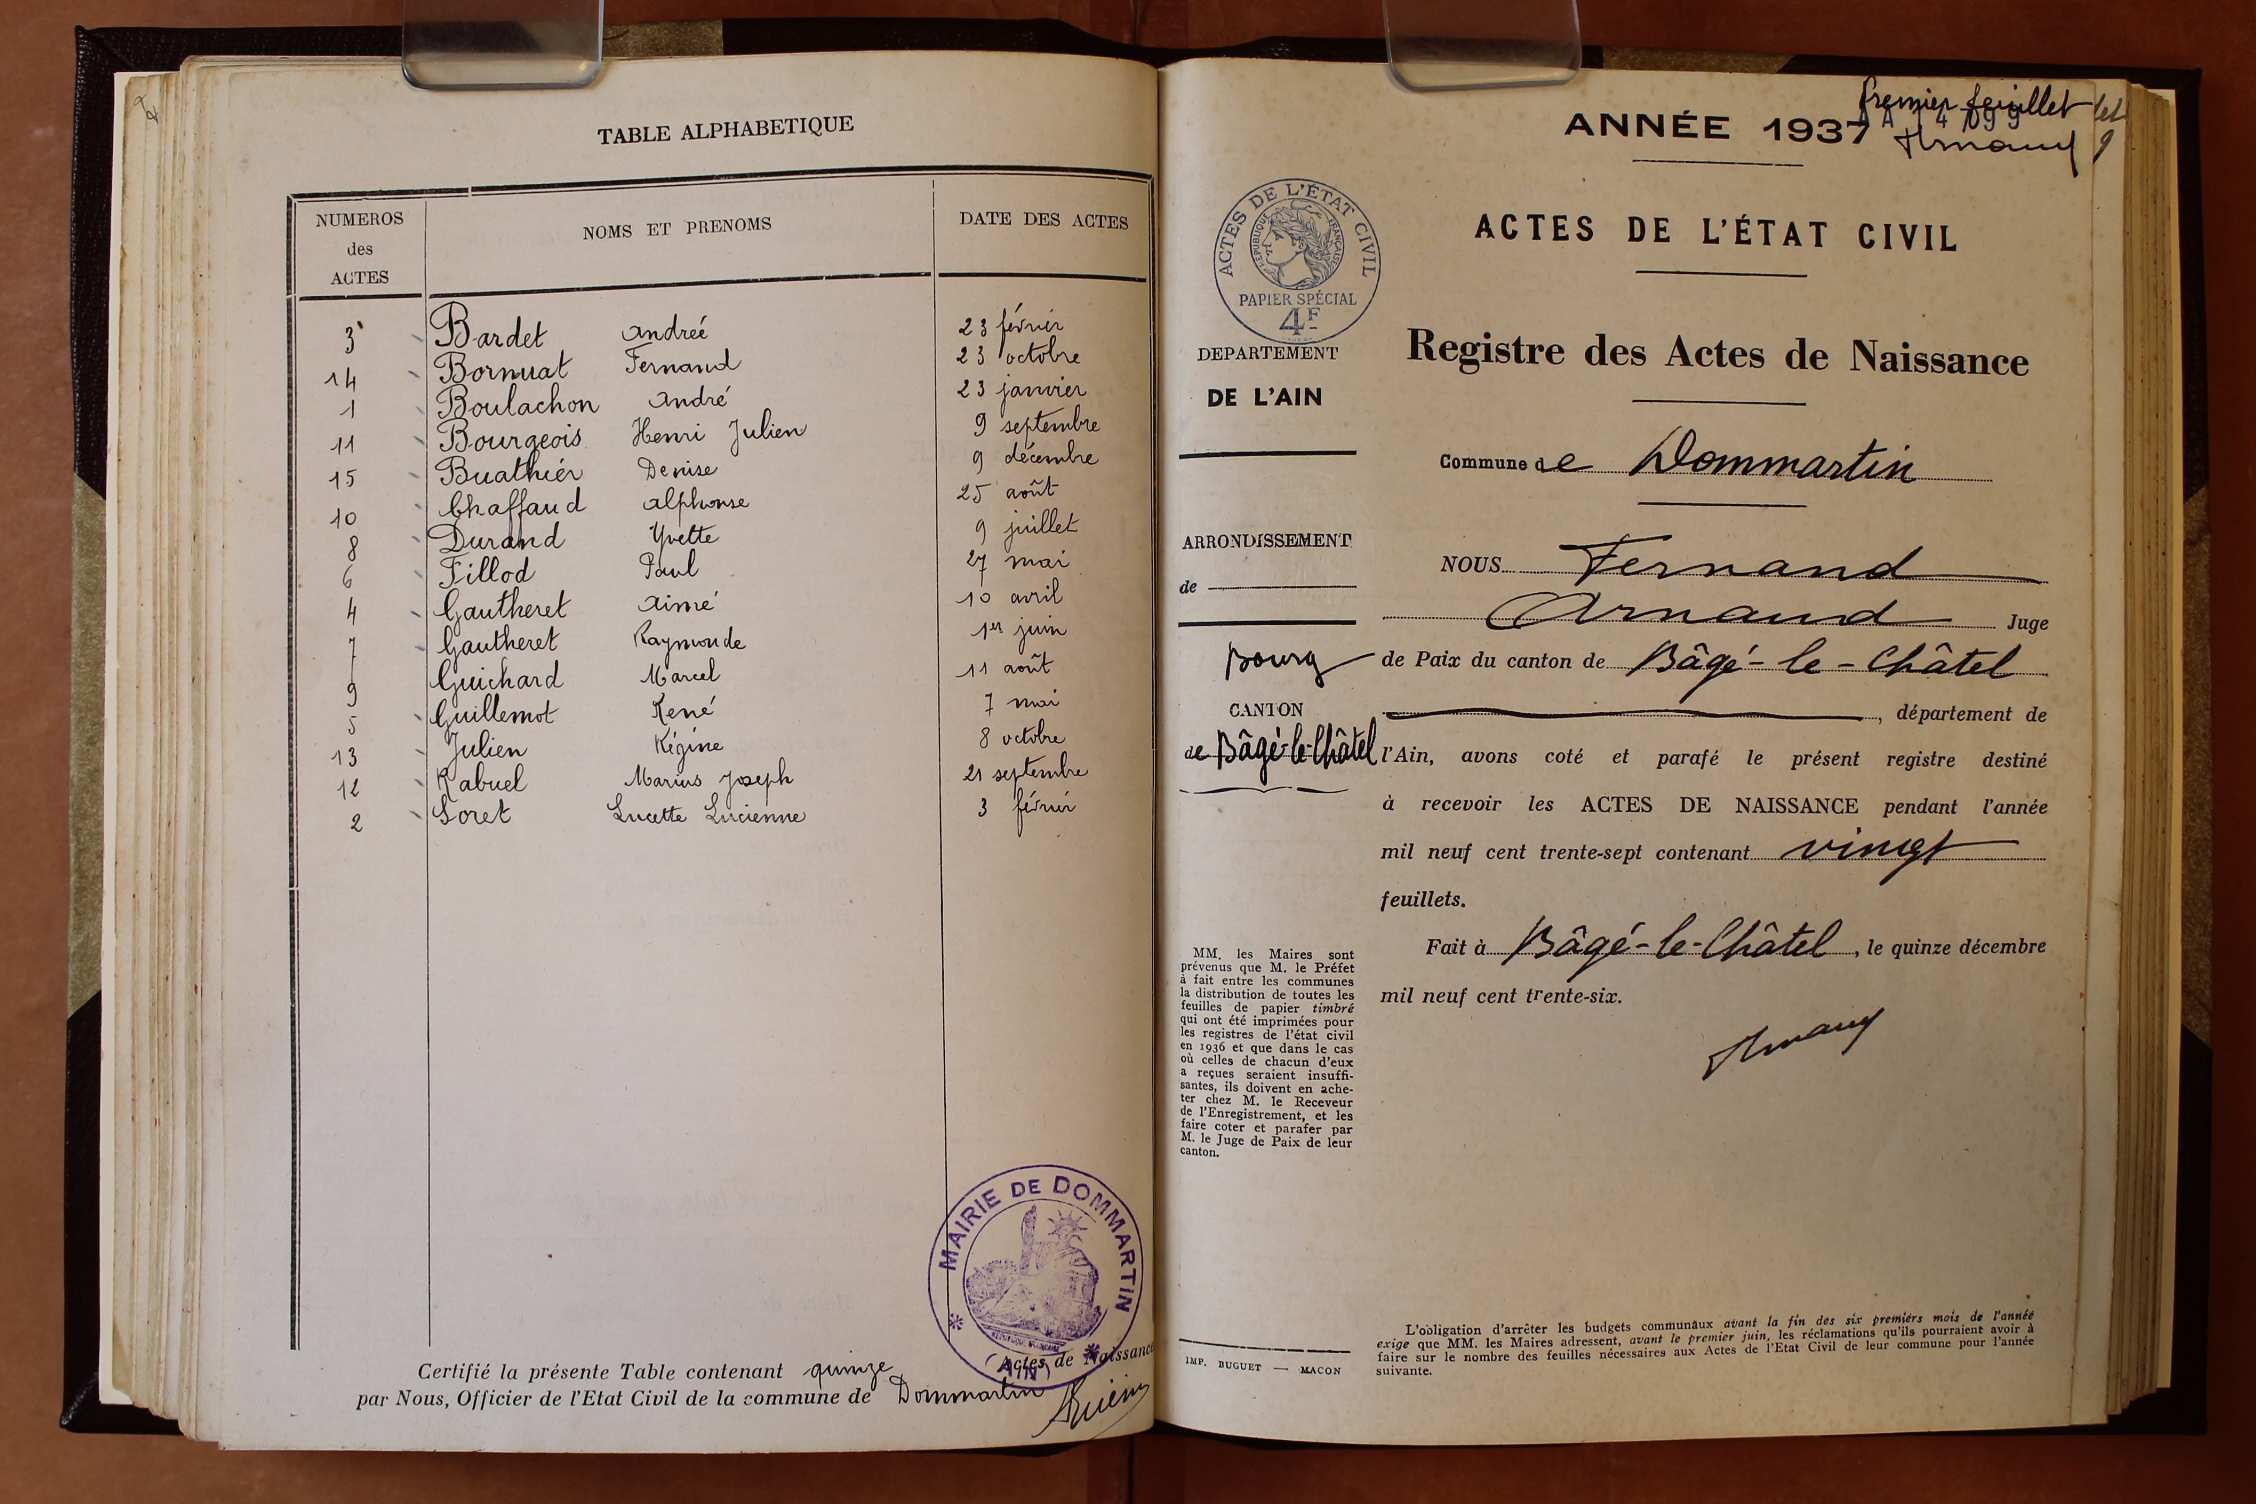 TABLE ALPHABETIQUE
NUMEROS des ACTES NOMS ET PRENOMS DATE DES ACTES
3 Bardet Andreé 23 février
14 Bornuat Fernand 23 octobre
1 Boulachon André 23 janvier
11 Bourgeois Henri Julien 9 septembre
15 Buathier Denise 9 décembre
10 Chaffaud Alphonse 25 août
8 Durand Yvette 9 juillet
6 Fillod Paul 27 mai
4 Gautheret Aimé 10 avril
7 Gautheret Raymonde 1er juin
9 Guichard Marcel 11 août
5 Guillemot René 7 mai
13 Julien Régine 8 octobre
12 Rabuel Marius Joseph 21 septembre
2 Soret Lucette Lucienne 3 février
MAIRIE DE DOMMARTIN
(AIN)
Certifié la présente Table contenant quinze Actes de Naissance
par Nous, Officier de l'Etat Civil de la commune de Dommartin
Premier feuillet
ANNÉE 1937
Arnaud
ACTES DE L'ÉTAT CIVIL
RÉPUBLIQUE FRANÇAISE
PAPIER SPÉCIAL
4F
ACTES DE L'ÉTAT CIVIL
DEPARTEMENT
DE L'AIN
Registre des Actes de Naissance
Commune de Dommartin
ARRONDISSEMENT
de
Bourg
CANTON
de Bâgé-le-Châtel
NOUS Fernand
Arnaud Juge
de Paix du canton de Bâgé-le-Châtel
, département de
l'Ain, avons coté et parafé le présent registre destiné
à recevoir les ACTES DE NAISSANCE pendant l'année
mil neuf cent trente-sept contenant vingt
feuillets.
Fait à Bâgé-le-Châtel, le quinze décembre
mil neuf cent trente-six.
Arnaud
MM. les Maires sont
prévenus que M. le Préfet
à fait entre les communes
la distribution de toutes les
feuilles de papier timbré
qui ont été imprimées pour
les registres de l'état civil
en 1936 et que dans le cas
où celles de chacun d'eux
a reçues seraient insuffi-
santes, ils doivent en ache-
ter chez M. le Receveur
de l'Enregistrement, et les
faire coter et parafer par
M. le Juge de Paix de leur
canton.
IMP. BUGUET — MACON
L'obligation d'arrêter les budgets communaux avant la fin des six premiers mois de l'année
exige que MM. les Maires adressent, avant le premier juin, les réclamations qu'ils pourraient avoir à
faire sur le nombre des feuilles nécessaires aux Actes de l'Etat Civil de leur commune pour l'année
suivante.